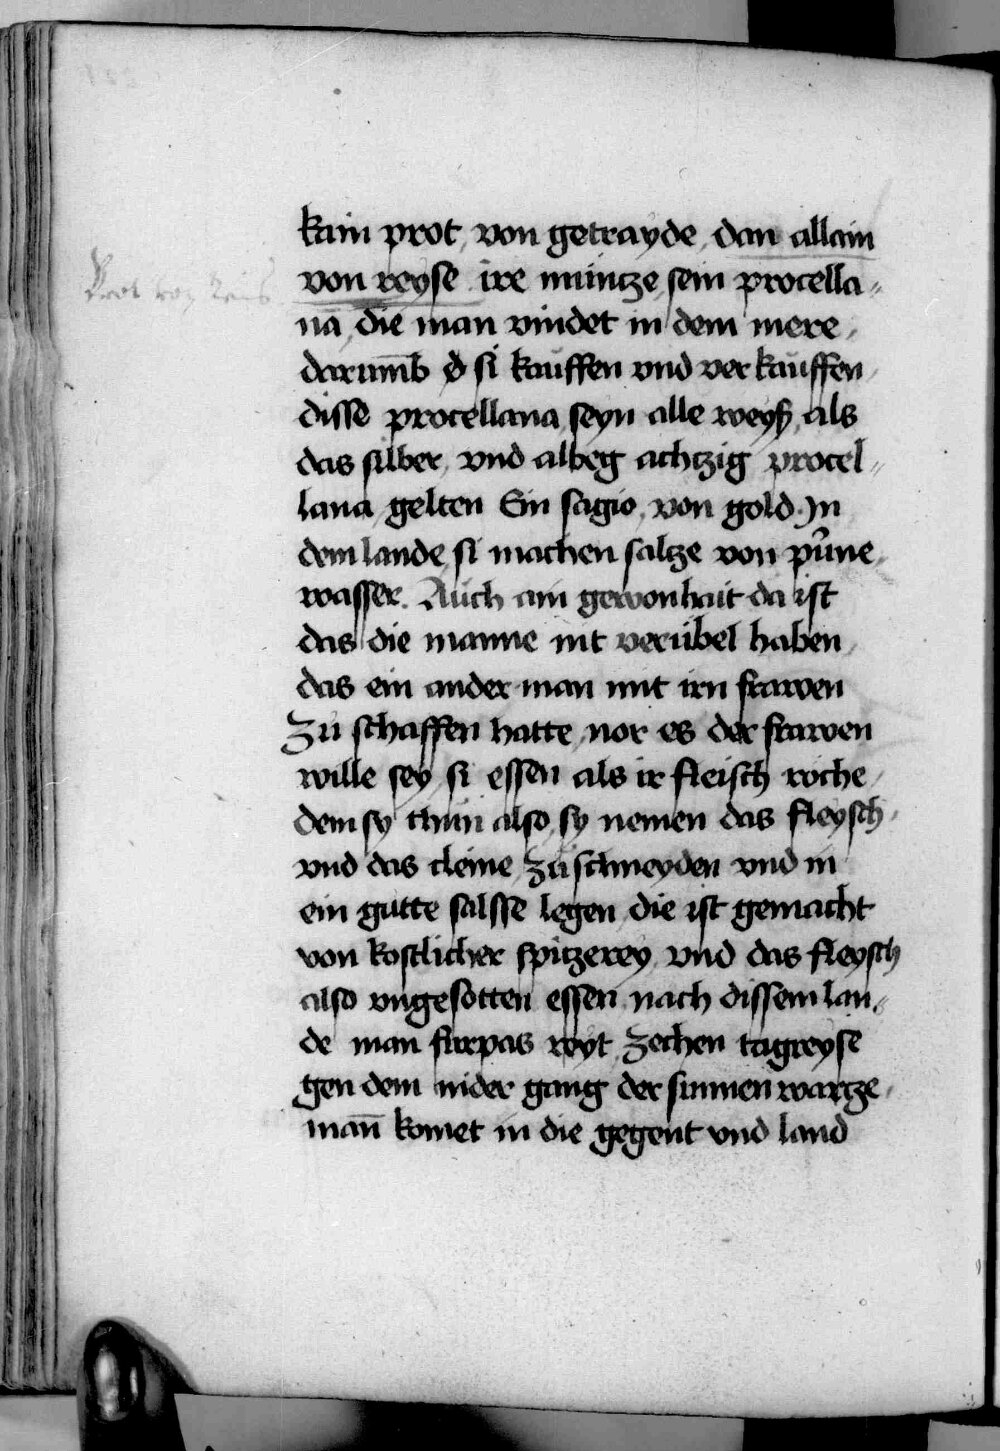 kain prot, von getrayde, dan allain
Prot von Reis
von reyse ire müntze, sein procella-
nā, die man vindet in dem mere,
darum̄b d si kauffen vnd verkauffen,
disse procellana, seyn alle weyß, als
das silber, vnd albeg achtzig procel-
lana, gelten Ein sagio, von gold. Jn
dem lande, si machen saltze von pr̃une,
wasser. Auch ain gewonhait da ist
das die manne nit verübel haben,
das ein ander man mit irn frawen
zü schaffen hatte, nor es der frawen
wille sey, si essen als ir fleisch roche,
dem sy thün also, sy nemen das fleysch,
vnd das cleine, zü schneyden vnd in
ein gütte salsse legen, die ist gemacht
von kostlicher spitzerey, vnd das fleysch
also vngesotten essen, nach dissem lan-
de man furpas reyt, zechen tagreyse
gen dem nider gang der sunnen wartze,
man̄ komet in die gegent vnd land